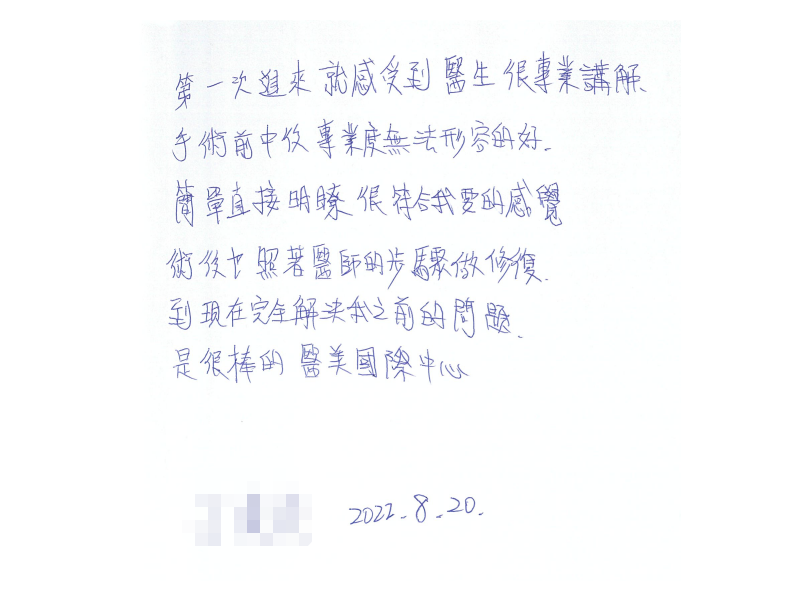 第一次進來就感受到醫生很專業講解、
手術前中後專業度無法形容的好.
簡單直接明瞭很符合我要的感覺
術後也照著醫師的步驟做修復.
到現在完全解決我之前的問題.
是很棒的醫美國際中心
2022.8.20.